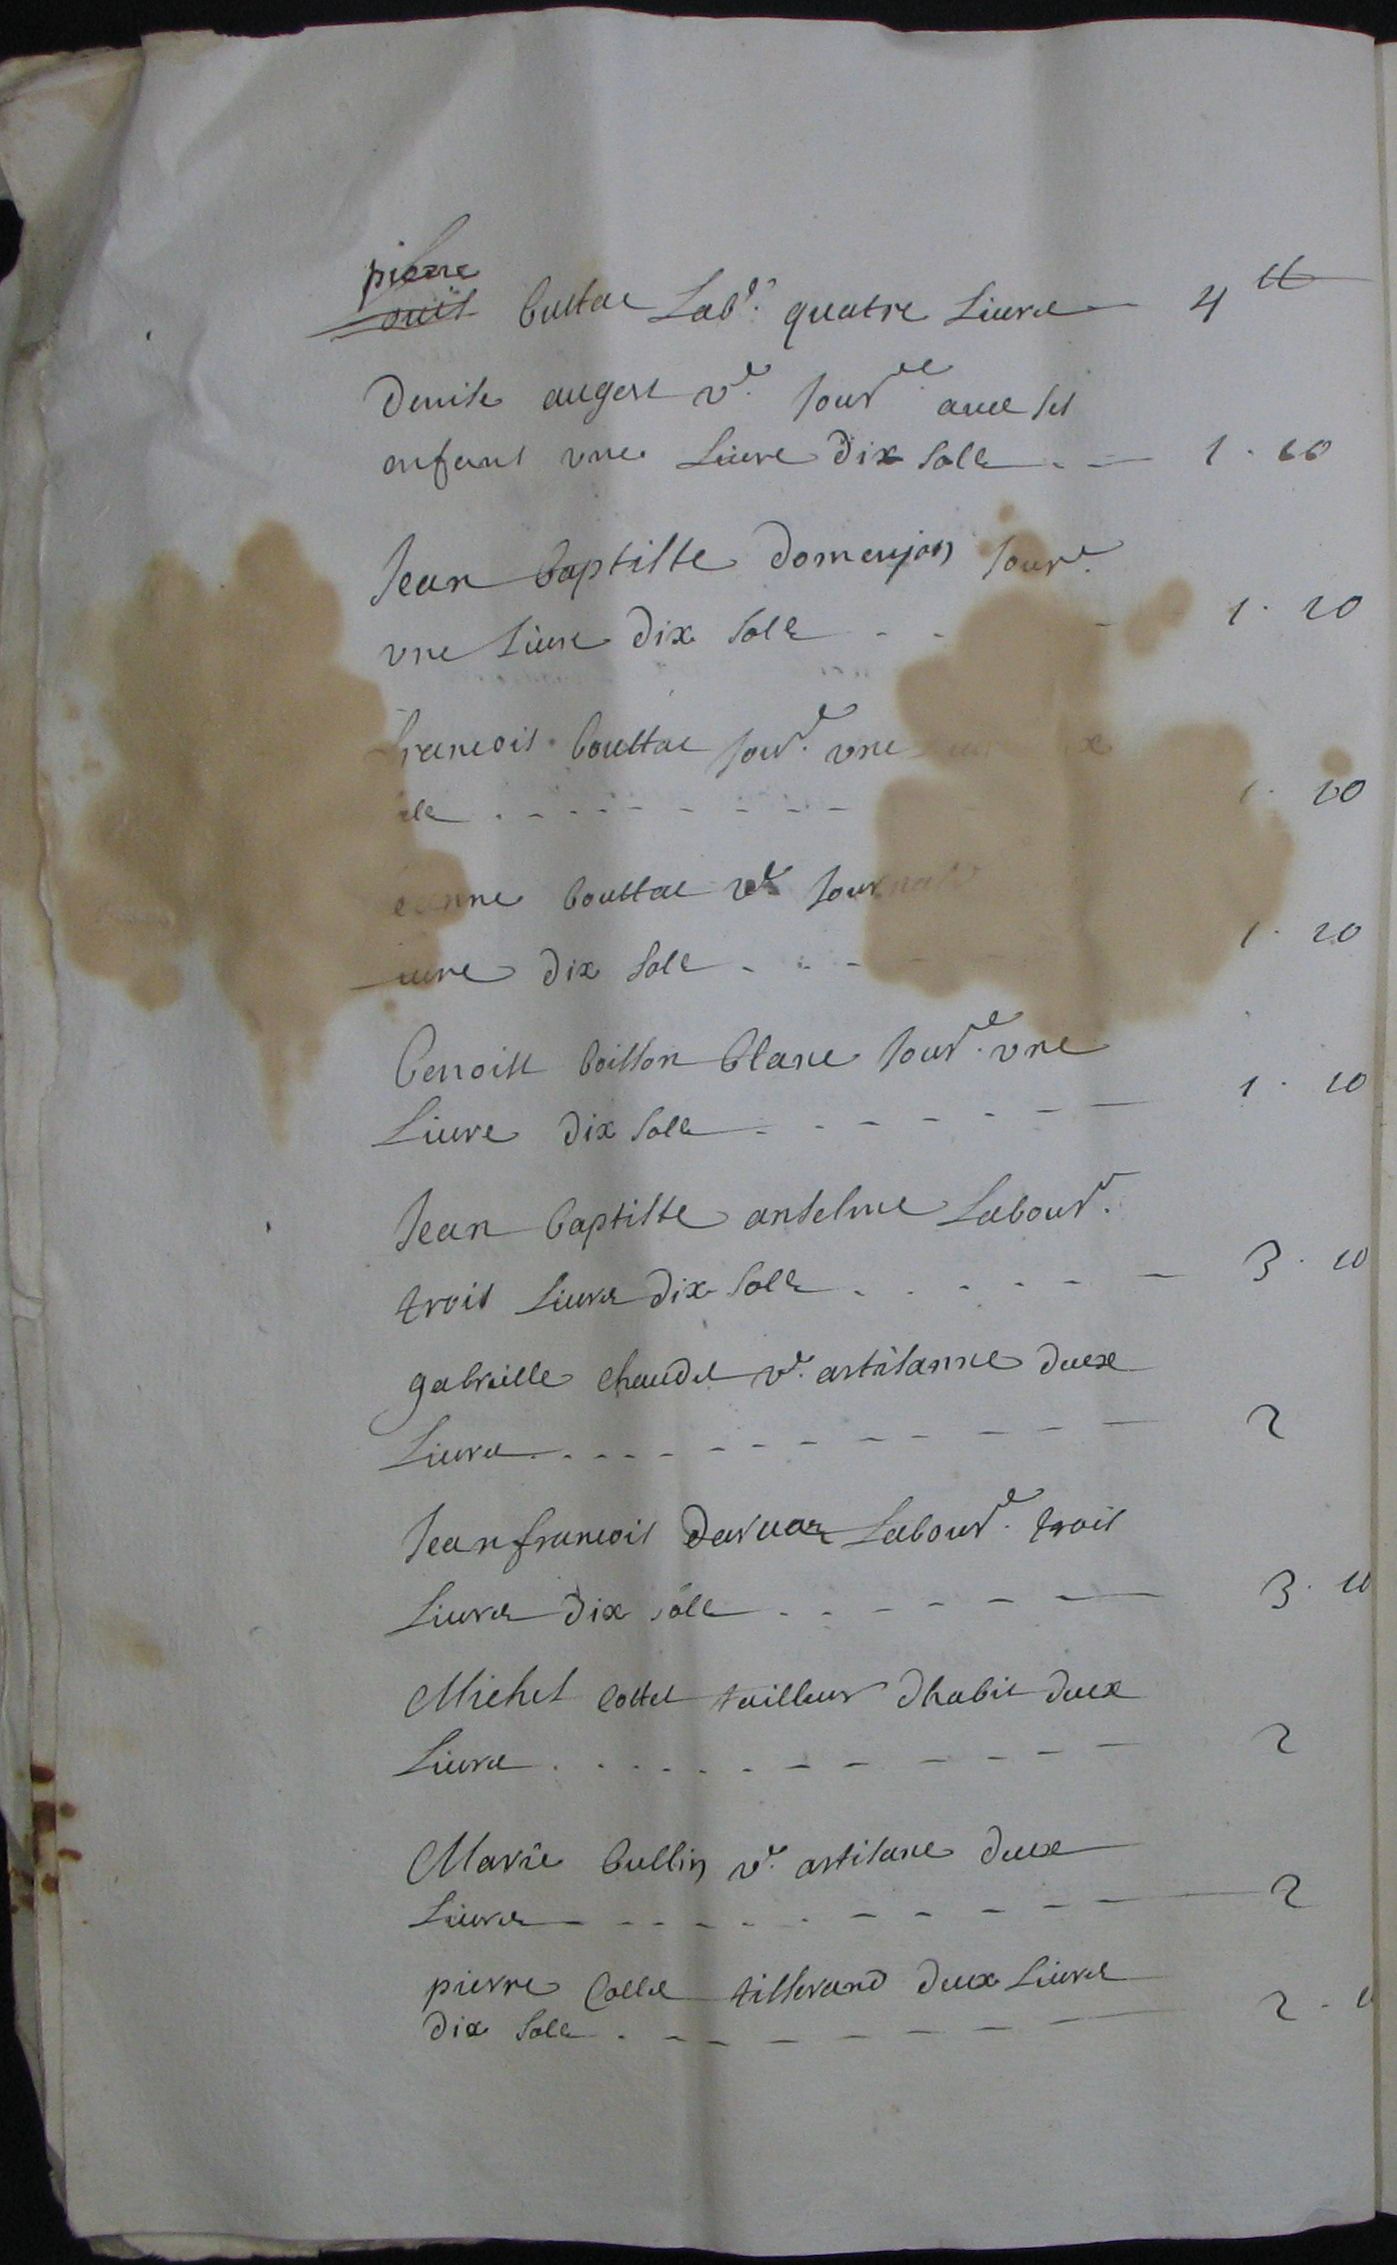 pierre
Louis buttae Lab.r quatre Livres 4 ₶
Denise auger v.e jour.re avec ses
enfans une Livre dix Solz 1 . 10
Jean baptiste domenjon jour.r
une Livre dix Solz 1 . 10
francois bouttae jour.r une
1 . 10
bouttae v.e
Livre dix Solz 1 . 10
benoist boisson blanc jour.r une
Livre dix Solz 1 . 10
Jean baptiste anselme Labour.r
trois Livres dix Solz 3 . 10
gabrielle chaudet v.e artisanne deux
Livres 2
Jean francois Labour.r trois
Livres dix Solz 3 . 10
Michel Cottet tailleur dhabit deux
Livres 2
Marie bullin v.e artisane deux
Livres 2
pierre Collet tisserand deux Livres
dix Solz 2 . 1